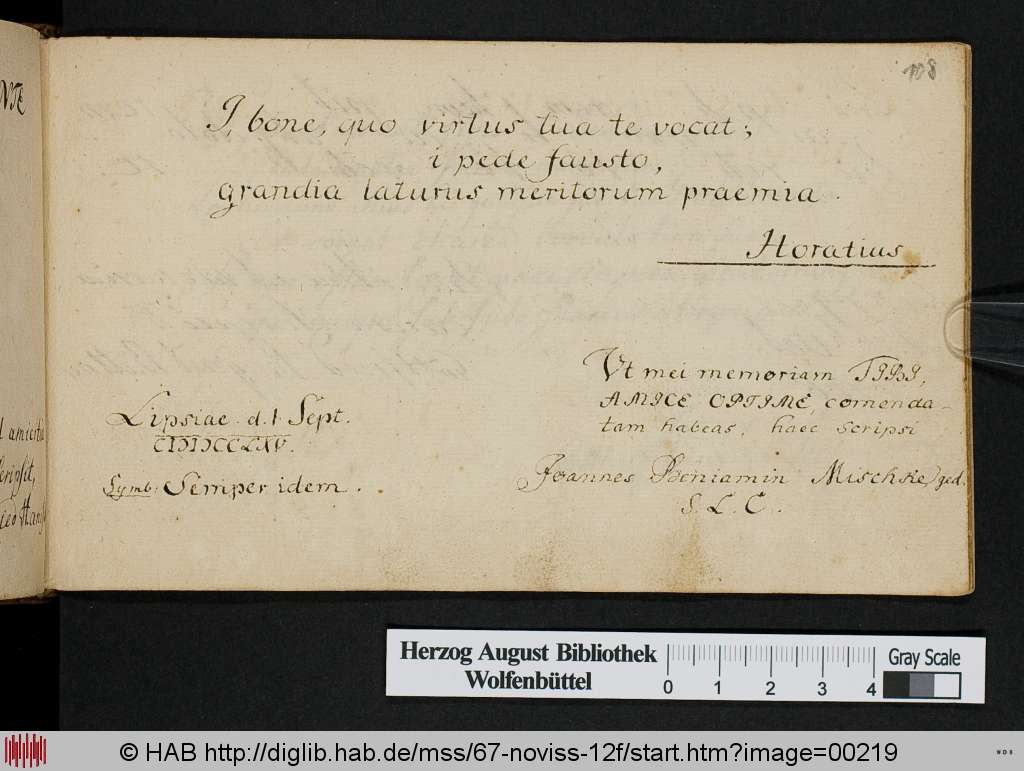 108
I, bone, quo virtus tua te vocat;
i pede fausto,
grandia laturus meritorum praemia.
Horatius
Vt mei memoriam TIBI,
AMICE OPTIME, comenda-
tam habeas, haec scripsi
Joannes Beniamin Mischke, ged.
S. L. C.
Lipsiae d. 1 Sept.
CIƆIƆCCLXV.
Symb: Semper idem.
amicitia
scripsit,
Herzog August Bibliothek
Wolfenbüttel
0 1 2 3 4
Gray Scale
© HAB http://diglib.hab.de/mss/67-noviss-12f/start.htm?image=00219
WDB